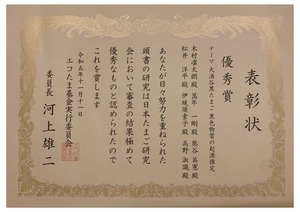 表彰状
優秀賞
テーマ 大涌谷黒たまご黒色物質の起源推定
木村 凜太朗殿 萬年 一剛殿 熊谷 英憲殿
松井 洋平殿 伊規須 素子殿 高野 淑識殿
あなたが日々努力を重ねられた
頭書の研究は日本たまご研究
会において審査の結果極めて
優秀なものと認められたので
これを賞します
令和五年十一月十一日
エコたま基金実行委員会
委員長 河上雄二